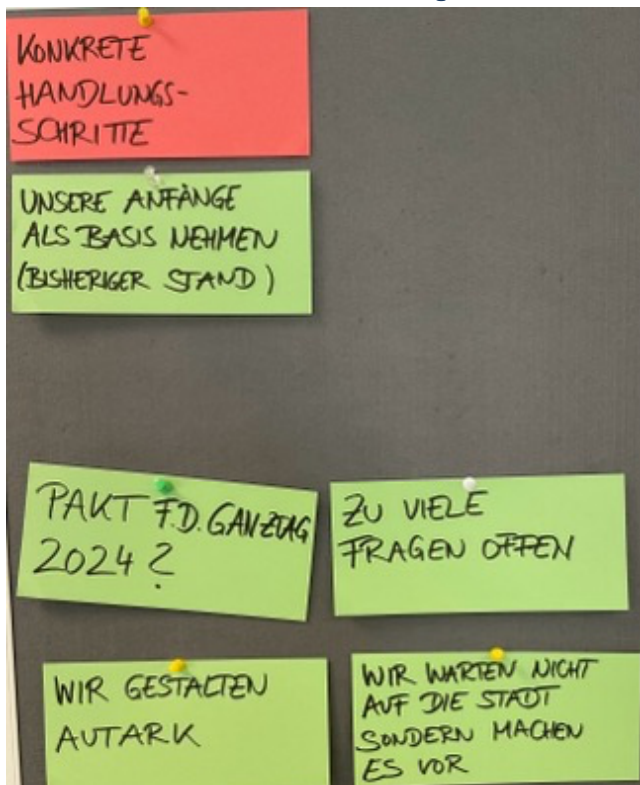 KONKRETE
HANDLUNGS-
SCHRITTE
UNSERE ANFÄNGE
ALS BASIS NEHMEN
(BISHERIGER STAND)
PAKT F.D. GANZTAG
2024?
ZU VIELE
FRAGEN OFFEN
WIR GESTALTEN
AUTARK
WIR WARTEN NICHT
AUF DIE STADT
SONDERN MACHEN
ES VOR